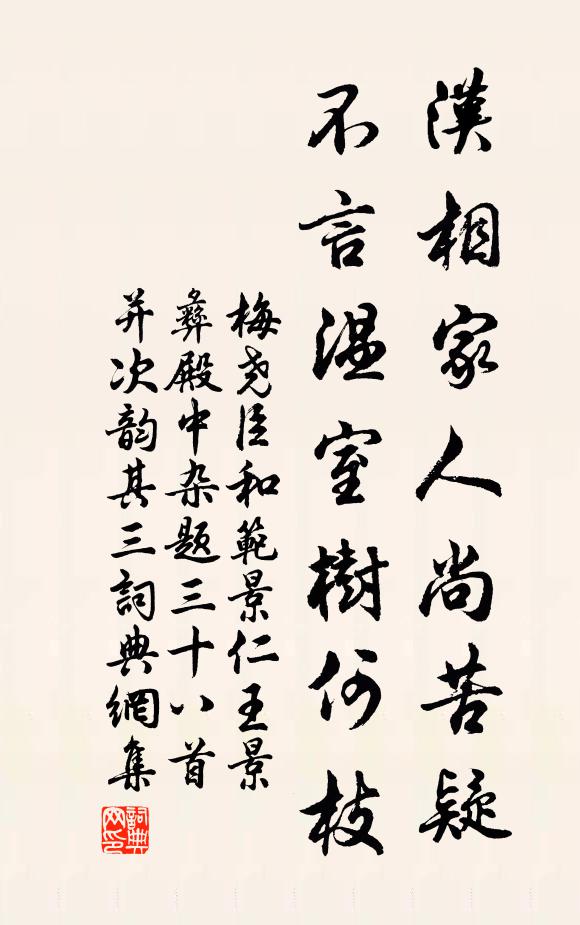 漢相家人尚苦疑
不言温室樹何枝
梅尧臣和範景仁王景
彝殿中杂题三十八首
并次韵其三詞典網集
詞典網印